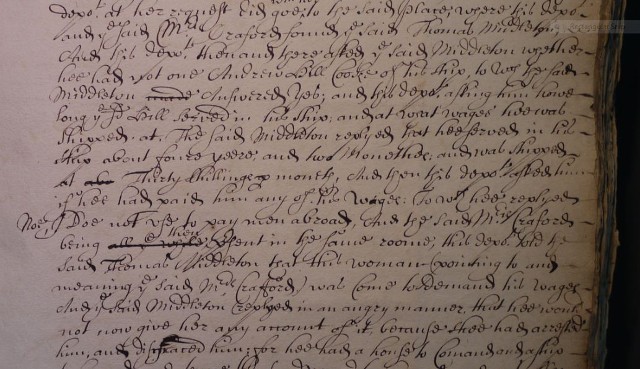 depo.t at her request did goe to the said place, where this depo.t
and ye said Mrs Craford found ye said Thomas Middleton
And this depo.t then and there asked ye said Middleton whether
hee had not one Andrew Bell Cooke of his ship, to wch the said
Middleton made Answered Yes; and this depo.t asking him howe
long ye sd Bell served in his ship, and at what wages hee was
shipped at. The said Middleton replyed that hee served in his
ship about foure yeere, and two Monethes, and was shipped
at abo Thirty shillings p moneth, And then this depo.t asked him
if hee had paid him any of his Wages: To wch hee replyed
Noe, I Doe not use to pay men abroad, And the said Mrs Craford
being all ye while then present in the same roome, this depo.t told ye
said Thomas Middleton that this woman (pointing to and
meaning ye said Mrs Crafford) was come to demand his wages
And ye said Middleton replyed in an angry manner, that hee would
not now give her any account of it, because shee had arrested
him, and disgraced him; for hee had a house to Comand and a ship